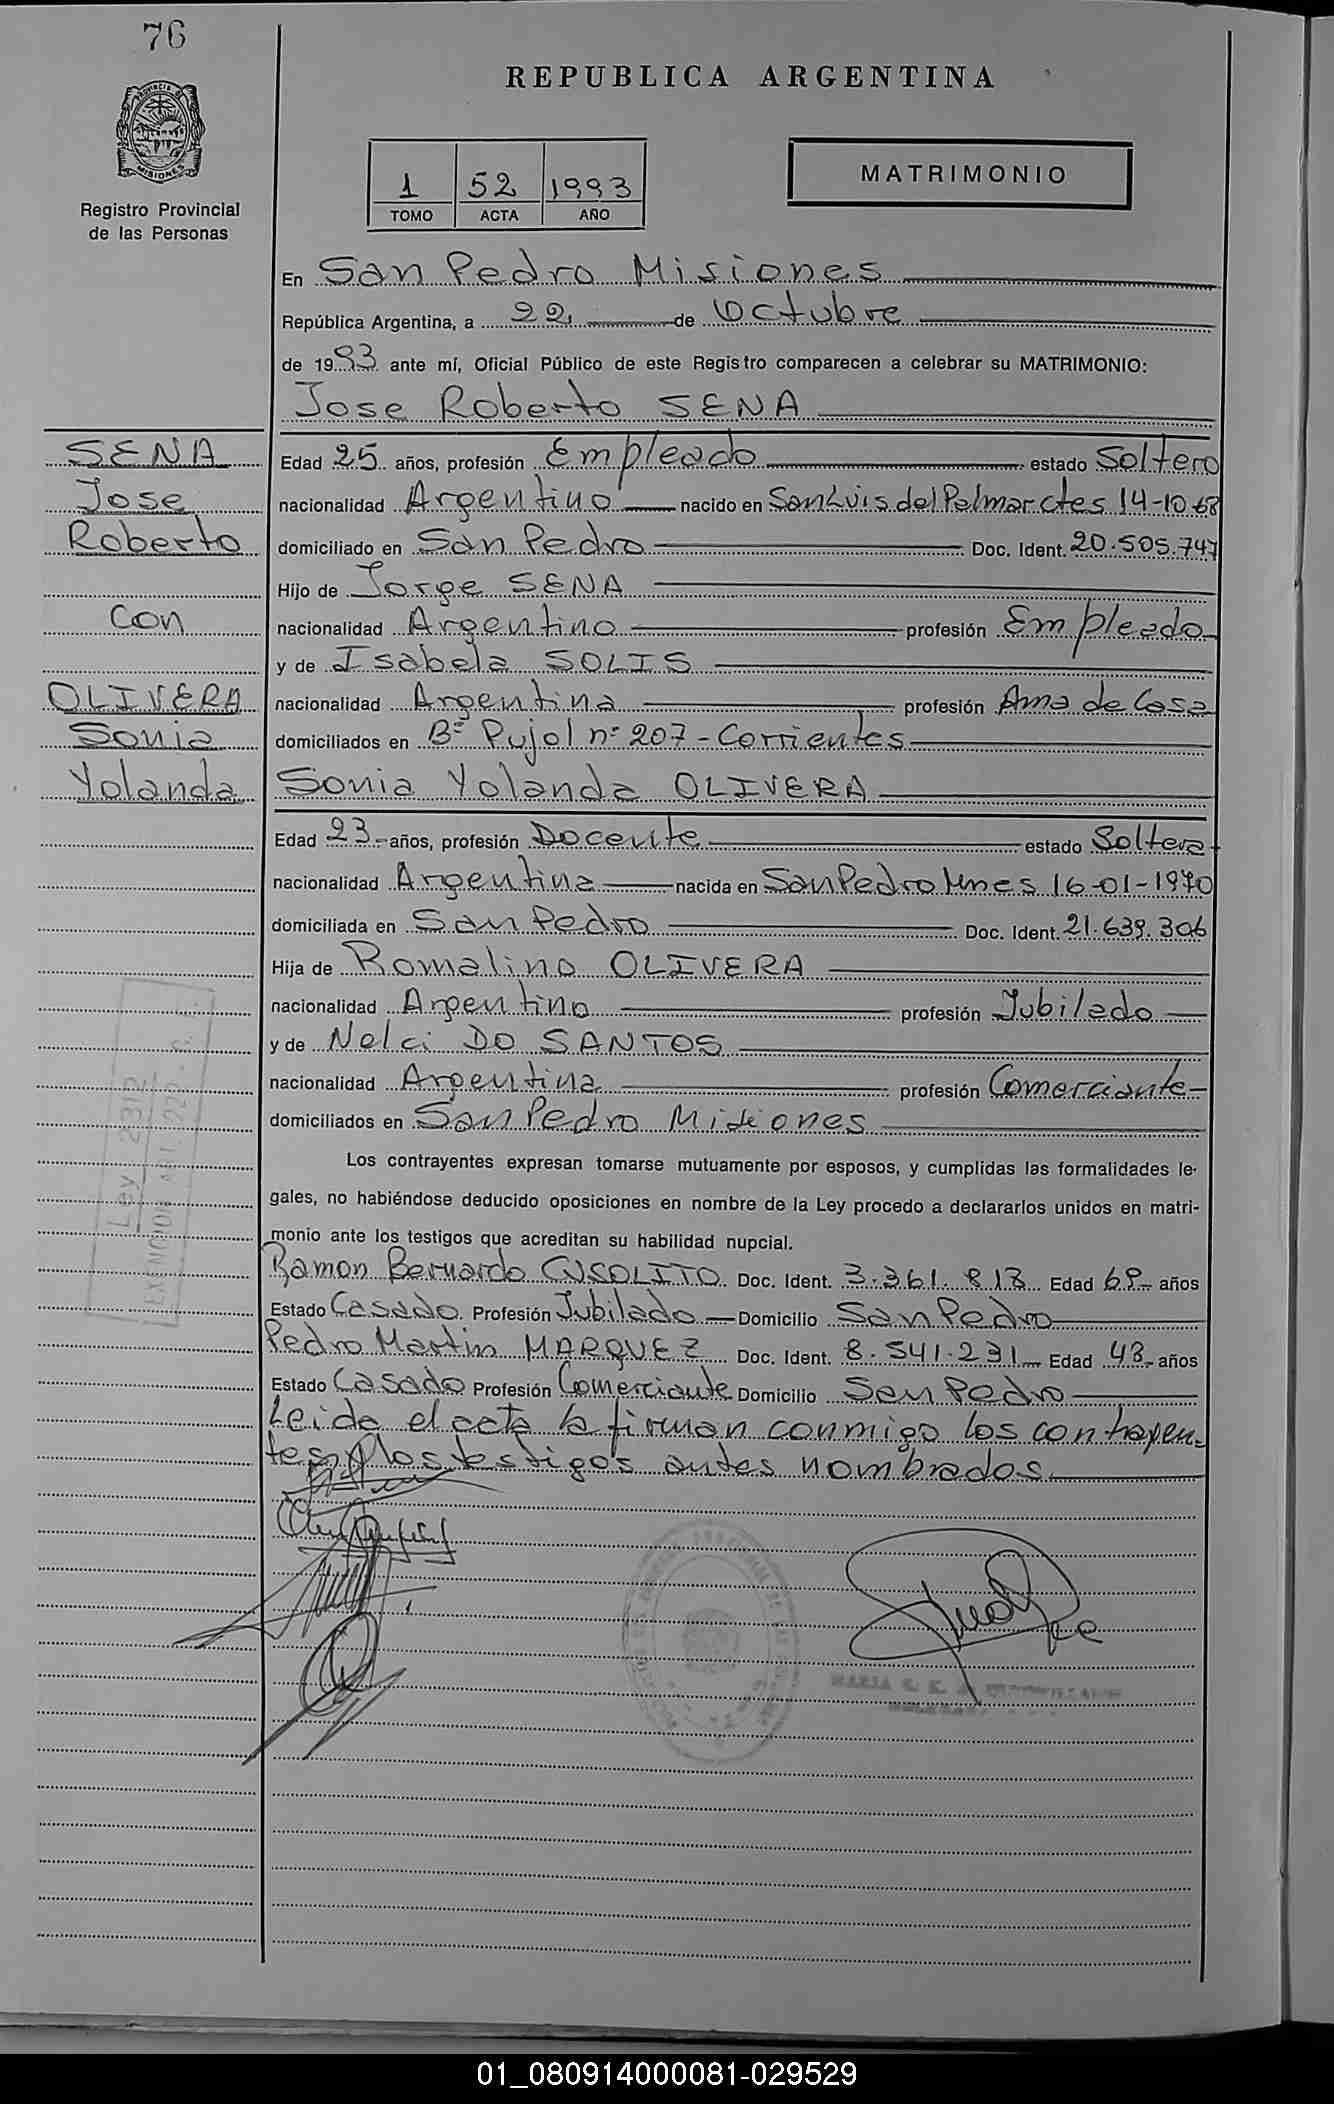 76
REPUBLICA ARGENTINA
MISIONES
1 52 1993
TOMO ACTA AÑO
MATRIMONIO
Registro Provincial
de las Personas
En San Pedro Misiones
República Argentina, a 22 de Octubre
de 1993 ante mí, Oficial Público de este Registro comparecen a celebrar su MATRIMONIO:
Jose Roberto SENA
SENA
Jose
Roberto
con
OLIVERA
Sonia
Yolanda
Edad 25 años, profesión Empleado estado Soltero
nacionalidad Argentino nacido en San Luis del Palmar ctes 14-10-68
domiciliado en San Pedro Doc. Ident. 20.505.747
Hijo de Jorge SENA
nacionalidad Argentino profesión Empleado
y de Isabela SOLIS
nacionalidad Argentina profesión Ama de Casa
domiciliados en Bº Pujol nº 207 - Corrientes
Sonia Yolanda OLIVERA
Edad 23 años, profesión Docente estado Soltera
nacionalidad Argentina nacida en San Pedro Mnes 16-01-1970
domiciliada en San Pedro Doc. Ident. 21.639.306
Hija de Romalino OLIVERA
nacionalidad Argentino profesión Jubilado
y de Nelci DO SANTOS
nacionalidad Argentina profesión Comerciante
domiciliados en San Pedro Misiones
Los contrayentes expresan tomarse mutuamente por esposos, y cumplidas las formalidades le-
gales, no habiéndose deducido oposiciones en nombre de la Ley procedo a declararlos unidos en matri-
monio ante los testigos que acreditan su habilidad nupcial.
Ramon Bernardo CUSOLITO Doc. Ident. 3.361.813 Edad 69 años
Estado Casado Profesión Jubilado Domicilio San Pedro
Pedro Martin MARQUEZ Doc. Ident. 8.541.231 Edad 43 años
Estado Casado Profesión Comerciante Domicilio San Pedro
Leida el acta la firman conmigo los contrayen-
tes y los testigos antes nombrados
Ley 2312
01_080914000081-029529